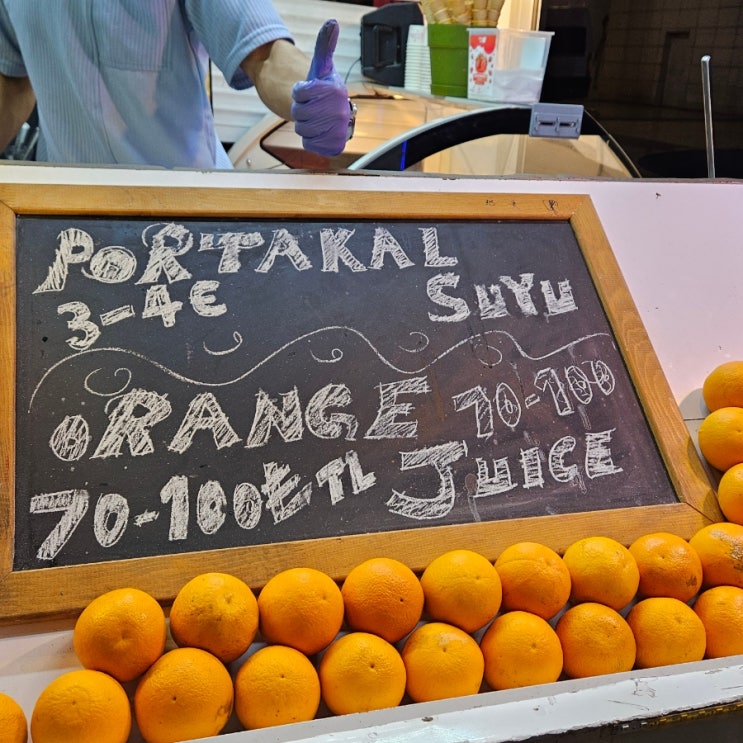 PORTAKAL
3-4€ SUYU
ORANGE 70-100
70-100₺TL JUICE